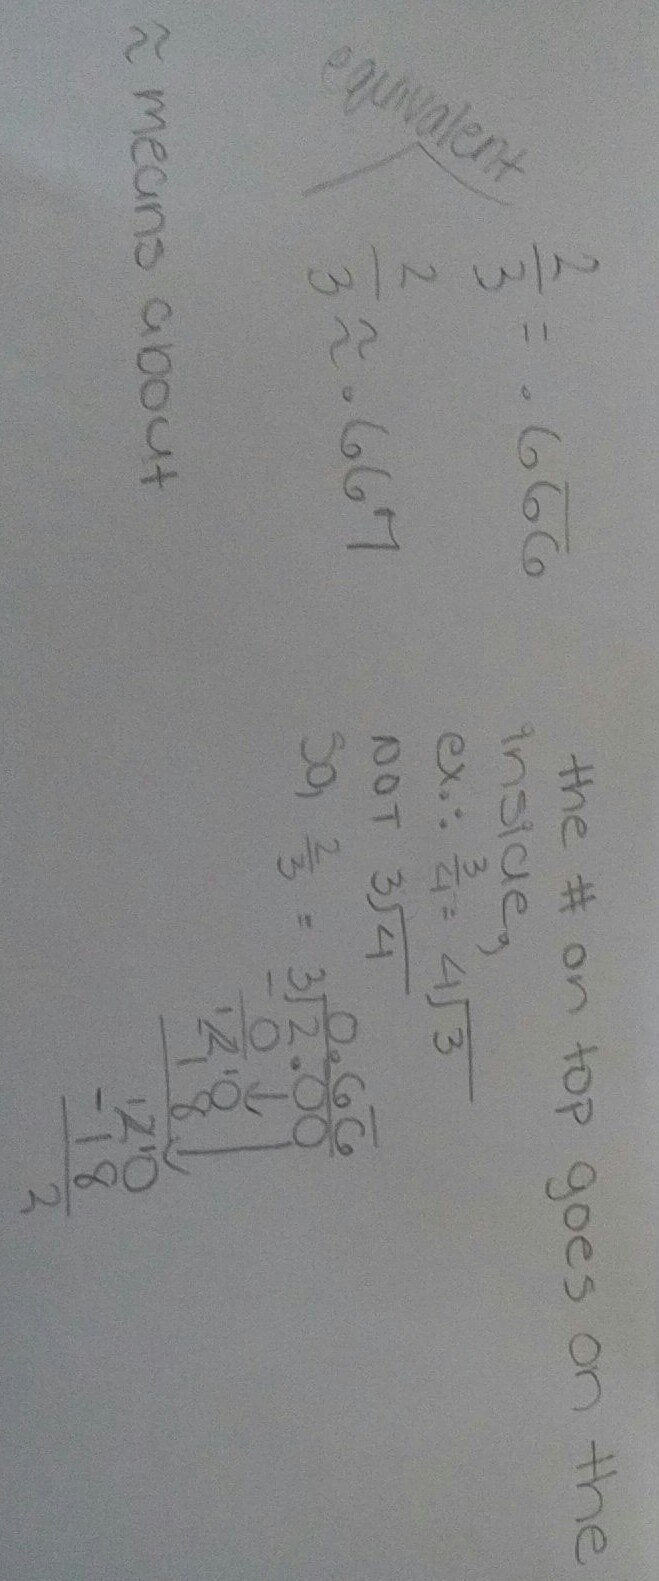 2/3 = .66̅6
equivalent
2/3 ≈ .667
≈ means about
the # on top goes on the
inside,
ex.: 3/4 = 4√3
not 3√4
So, 2/3 = 3√2.00
0.66̅
- 0
20
18
20
- 18
2